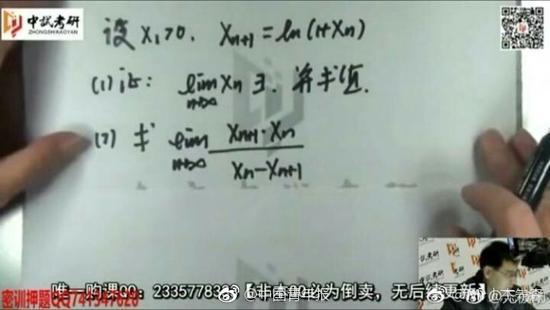 中试考研
ZHONGSHIKAOYAN
设 x₁>0, xₙ₊₁=ln(1+xₙ)
(1) 证: lim n→∞ xₙ ∃, 并求值.
(2) 求 lim n→∞ (xₙ₊₁·xₙ)/(xₙ-xₙ₊₁)
唯一购课QQ: 2335778383【非本QQ必为倒卖,无后续更新】
密训押题QQ741947620
@中国青年报